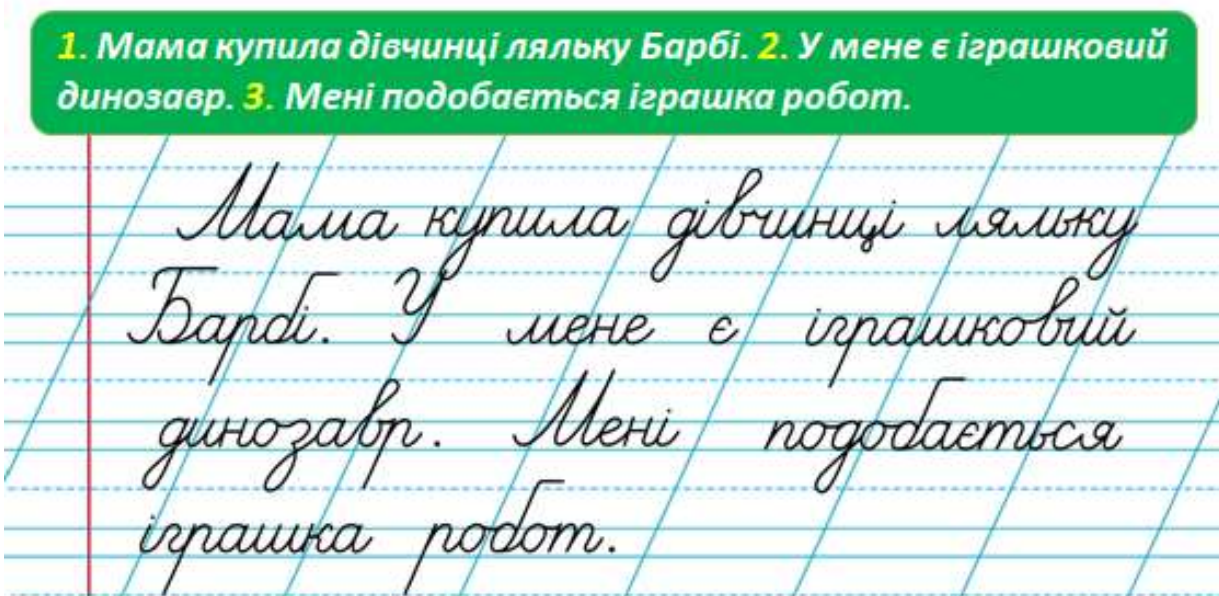 1. Мама купила дівчинці ляльку Барбі. 2. У мене є іграшковий
динозавр. 3. Мені подобається іграшка робот.
Мама купила дівчинці ляльку
Барбі. У мене є іграшковий
динозавр. Мені подобається
іграшка робот.